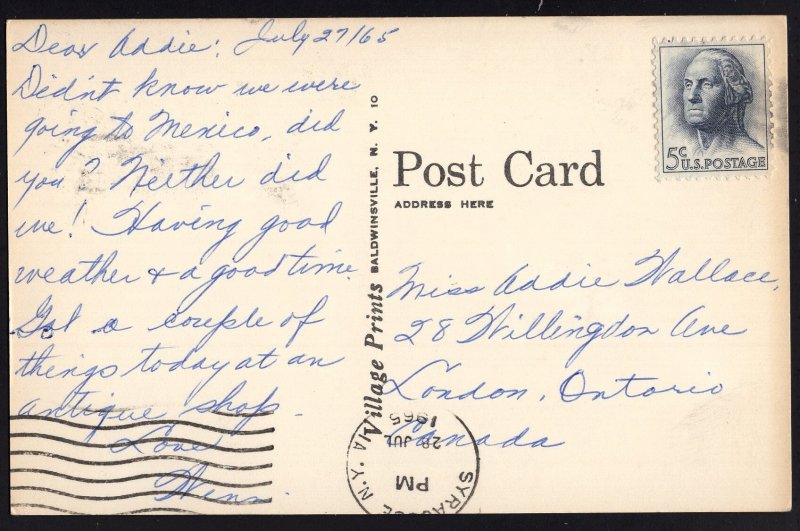 Dear Addie; July 27/65
Didn't know we were
going to Mexico, did
you? Neither did
we! Having good
weather & a good time.
Got a couple of
things today at an
antique shop.
Love
Wenn.
Village Prints BALDWINSVILLE, N. Y. 10
5c
U.S. POSTAGE
Post Card
ADDRESS HERE
Miss Addie Wallace,
28 Willingdon Ave
London, Ontario
Canada
SYRACUSE N.Y. VIA
PM
28 JUL
1965